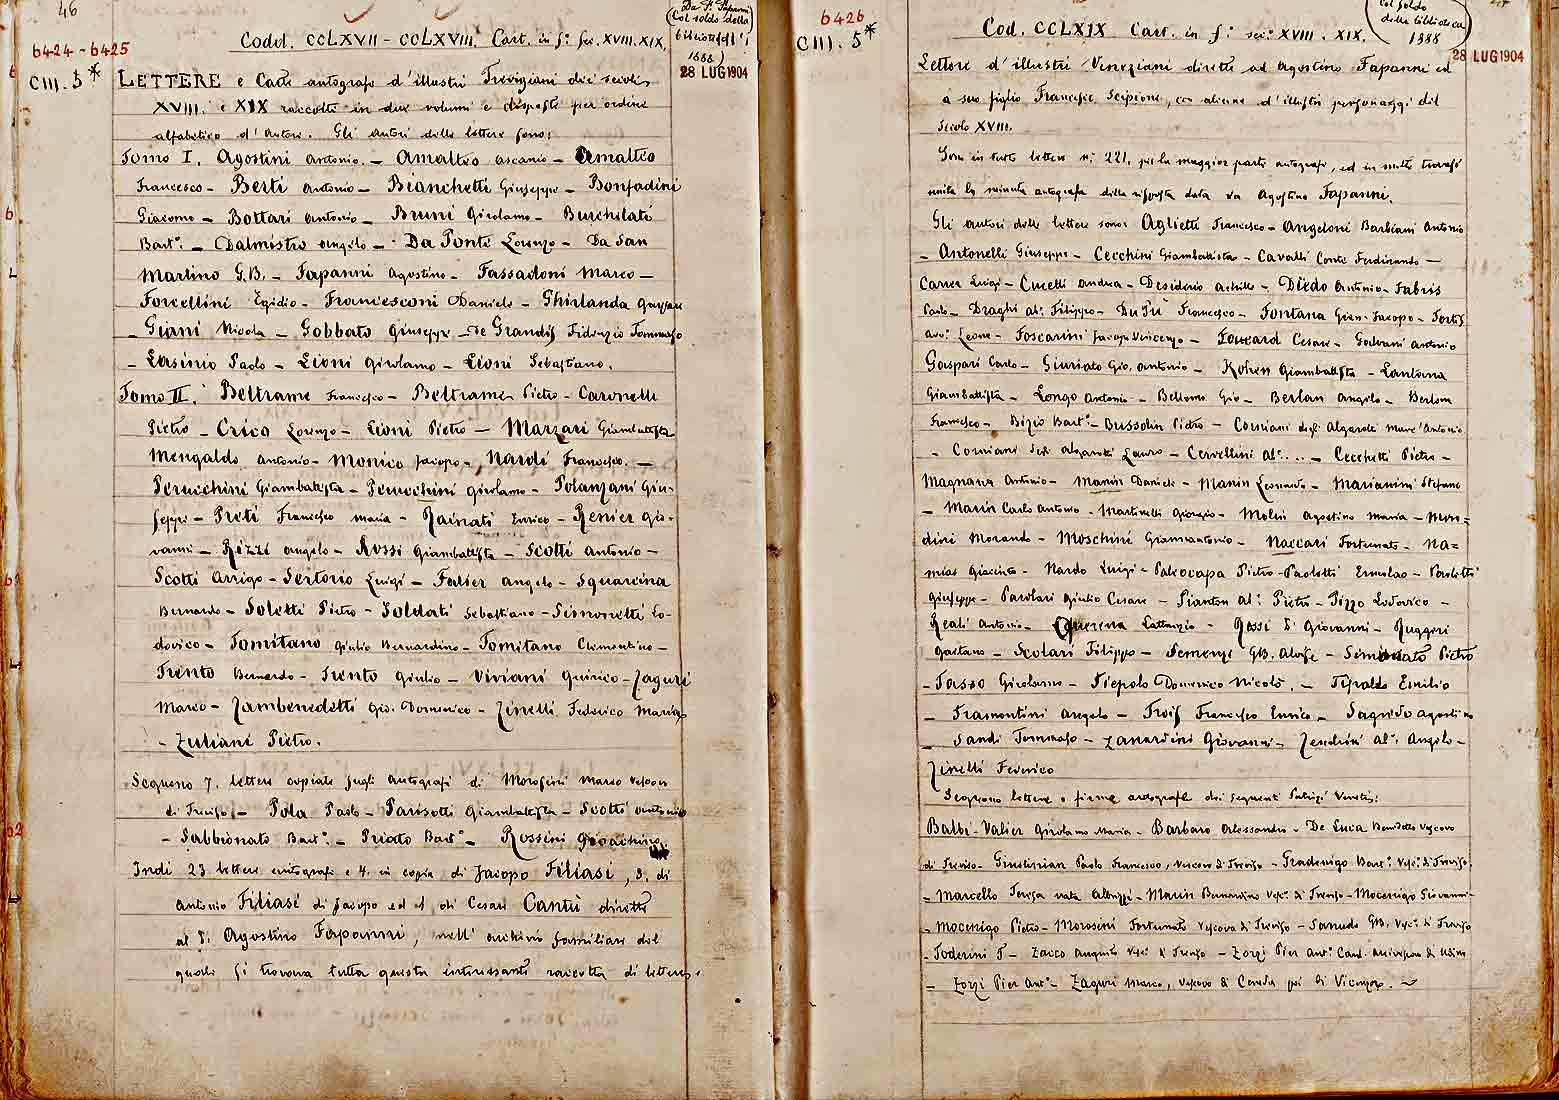 46
6424 - 6425
CIII. 5*
Codd. CCLXVII - CCLXVIII. Cart. in fº. sec. XVIII. XIX.
(Da F. Fapanni
Col soldo della
biblioteca
1888)
28 LUG 1904
LETTERE e Carte autografe d'illustri Trevigiani dei secoli
XVIII. e XIX raccolte in due volumi e disposte per ordine
alfabetico d'autore. Gli autori delle lettere sono:
Tomo I. Agostini Antonio. - Amalteo Ascanio - Amalteo
Francesco - Berti Antonio - Bianchetti Giuseppe - Bonfadini
Giacomo - Bottari Antonio - Bruni Girolamo - Burchelati
Bartº. - Dalmistro Angelo - Da Ponte Lorenzo - Da San
Martino G.B. - Fapanni Agostino - Fassadoni Marco -
Forcellini Egidio - Francesconi Daniele - Ghirlanda Gaspare
- Giani Nicola - Gobbato Giuseppe - De Grandis Fidenzio Tommaso
- Lasinio Paolo - Lioni Girolamo - Lioni Sebastiano.
Tomo II. Beltrame Francesco - Beltrame Pietro - Caronelli
Pietro - Crico Lorenzo - Lioni Pietro - Marzari Giambattista
Mengaldo Antonio - Monico Jacopo - Nardi Francesco. -
Perucchini Giambattista - Perucchini Girolamo - Polanzani Giu-
seppe - Preti Francesco Maria - Rainati Enrico - Renier Gio-
vanni - Rizzi Angelo - Rossi Giambattista - Scotti Antonio -
Scotti Arrigo - Sertorio Luigi - Falier Angelo - Squarcina
Bernardo - Soletti Pietro - Soldati Sebastiano - Simonetti Lo-
dovico - Tomitano Giulio Bernardino - Tomitano Clementino -
Trento Bernardo - Trento Giulio - Viviani Quirico - Zaguri
Marco - Zambenedetti Gio. Domenico - Zinelli Federico Maria
- Zuliani Pietro.
Seguono 7. lettere copiate sugli autografi di Morosini Marco Vescovo
di Treviso - Pola Paolo - Parisotti Giambattista - Scotti Antonio
- Sabbionato Bartº. - Priato Bartº - Rossini Gioachino.
Indi 23 lettere autografe e 4. in copia di Jacopo Filiasi, 3. di
Antonio Filiasi di Jacopo ed 1. di Cesare Cantù dirette
al S. Agostino Fapanni, nell' archivio familiare del
quale si trovava tutta questa interessante raccolta di lettere.
6426
CIII. 5*
Cod. CCLXIX Cart. in fº. secº. XVIII. XIX.
Col soldo
della biblioteca
1888
28 LUG 1904
Lettere d'illustri Veneziani dirette ad Agostino Fapanni ed
a suo figlio Francesco Scipione, con alcune d'illustri personaggi del
Secolo XVIII.
Sono in tutto lettere nº. 221. per la maggior parte autografe, ed in molte trovasi
unita la minuta autografa della risposta data da Agostino Fapanni.
Gli autori delle lettere sono: Aglietti Francesco - Angeloni Barbiani Antonio
- Antonelli Giuseppe - Cecchini Giambattista - Cavalli Conte Ferdinando -
Carrer Luigi - Cucetti Andrea - Desiderio Achille - Diedo Antonio - Fabris
Paolo - Draghi abº. Filippo - Du Prè Francesco - Fontana Gian-Jacopo - Fortis
avvº. Leone - Foscarini Jacopo Vincenzo - Foucard Cesare - Galvani Antonio
Gaspari Carlo - Giuriato Gio. Antonio - Kohen Giambattista - Lantana
Giambattista - Longo Antonio - Bellomo Gio - Berlan Angelo - Berlan
Francesco - Bizio Bartº - Bussolin Pietro - Corniani degli Algarotti Marc'Antonio
- Corniani degli Algarotti Lauro - Cervellini abº. ... - Cecchetti Pietro -
Magnana Antonio - Manin Daniele - Manin Leonardo - Marianini Stefano
- Marin Carlo Antonio - Martinelli Giorgio - Molin Agostino Maria - Mon=
dini Morando - Moschini Giannantonio - Naccari Fortunato - Na=
mias Giacinto - Nardo Luigi - Paleocapa Pietro - Paoletti Ermolao - Paoletti
Giuseppe - Parolari Giulio Cesare - Pianton abº. Pietro - Pizzo Lodovico -
Reali Antonio - Querena Lattanzio - Rossi Dº Giovanni - Ruggeri
Gaetano - Scolari Filippo - Semenzi GB. Aloise - Simonato Pietro
- Tasso Girolamo - Tiepolo Domenico Nicolò. - Tipaldo Emilio
- Tramontini Angelo - Trois Francesco Enrico - Sagredo Agostino
- Sandi Tommaso - Zanardini Giovanni - Zendrini abº. Angelo -
Zinelli Federico
Seguono lettere o firme autografe dei seguenti Patrizi Veneti:
Balbi-Valier Girolamo Maria - Barbaro Alessandro - De Luca Benedetto Vescovo
di Treviso - Giustinian Paolo Francesco, Vescovo di Treviso - Gradenigo Bartº. Vescº. di Treviso.
- Marcello Teresa nata Albrizzi - Marin Bernardino Vescº. di Treviso - Mocenigo Giovanni -
- Mocenigo Pietro - Morosini Fortunato Vescovo di Treviso - Sanudo GB. Vescº. di Treviso
- Toderini T - Zacco Augusto Vescº. di Treviso - Zorzi Pier Antº. Card. Arcivescovo di Udine
- Zorzi Pier Antº - Zaguri Marco, Vescovo di Ceneda poi di Vicenza. -